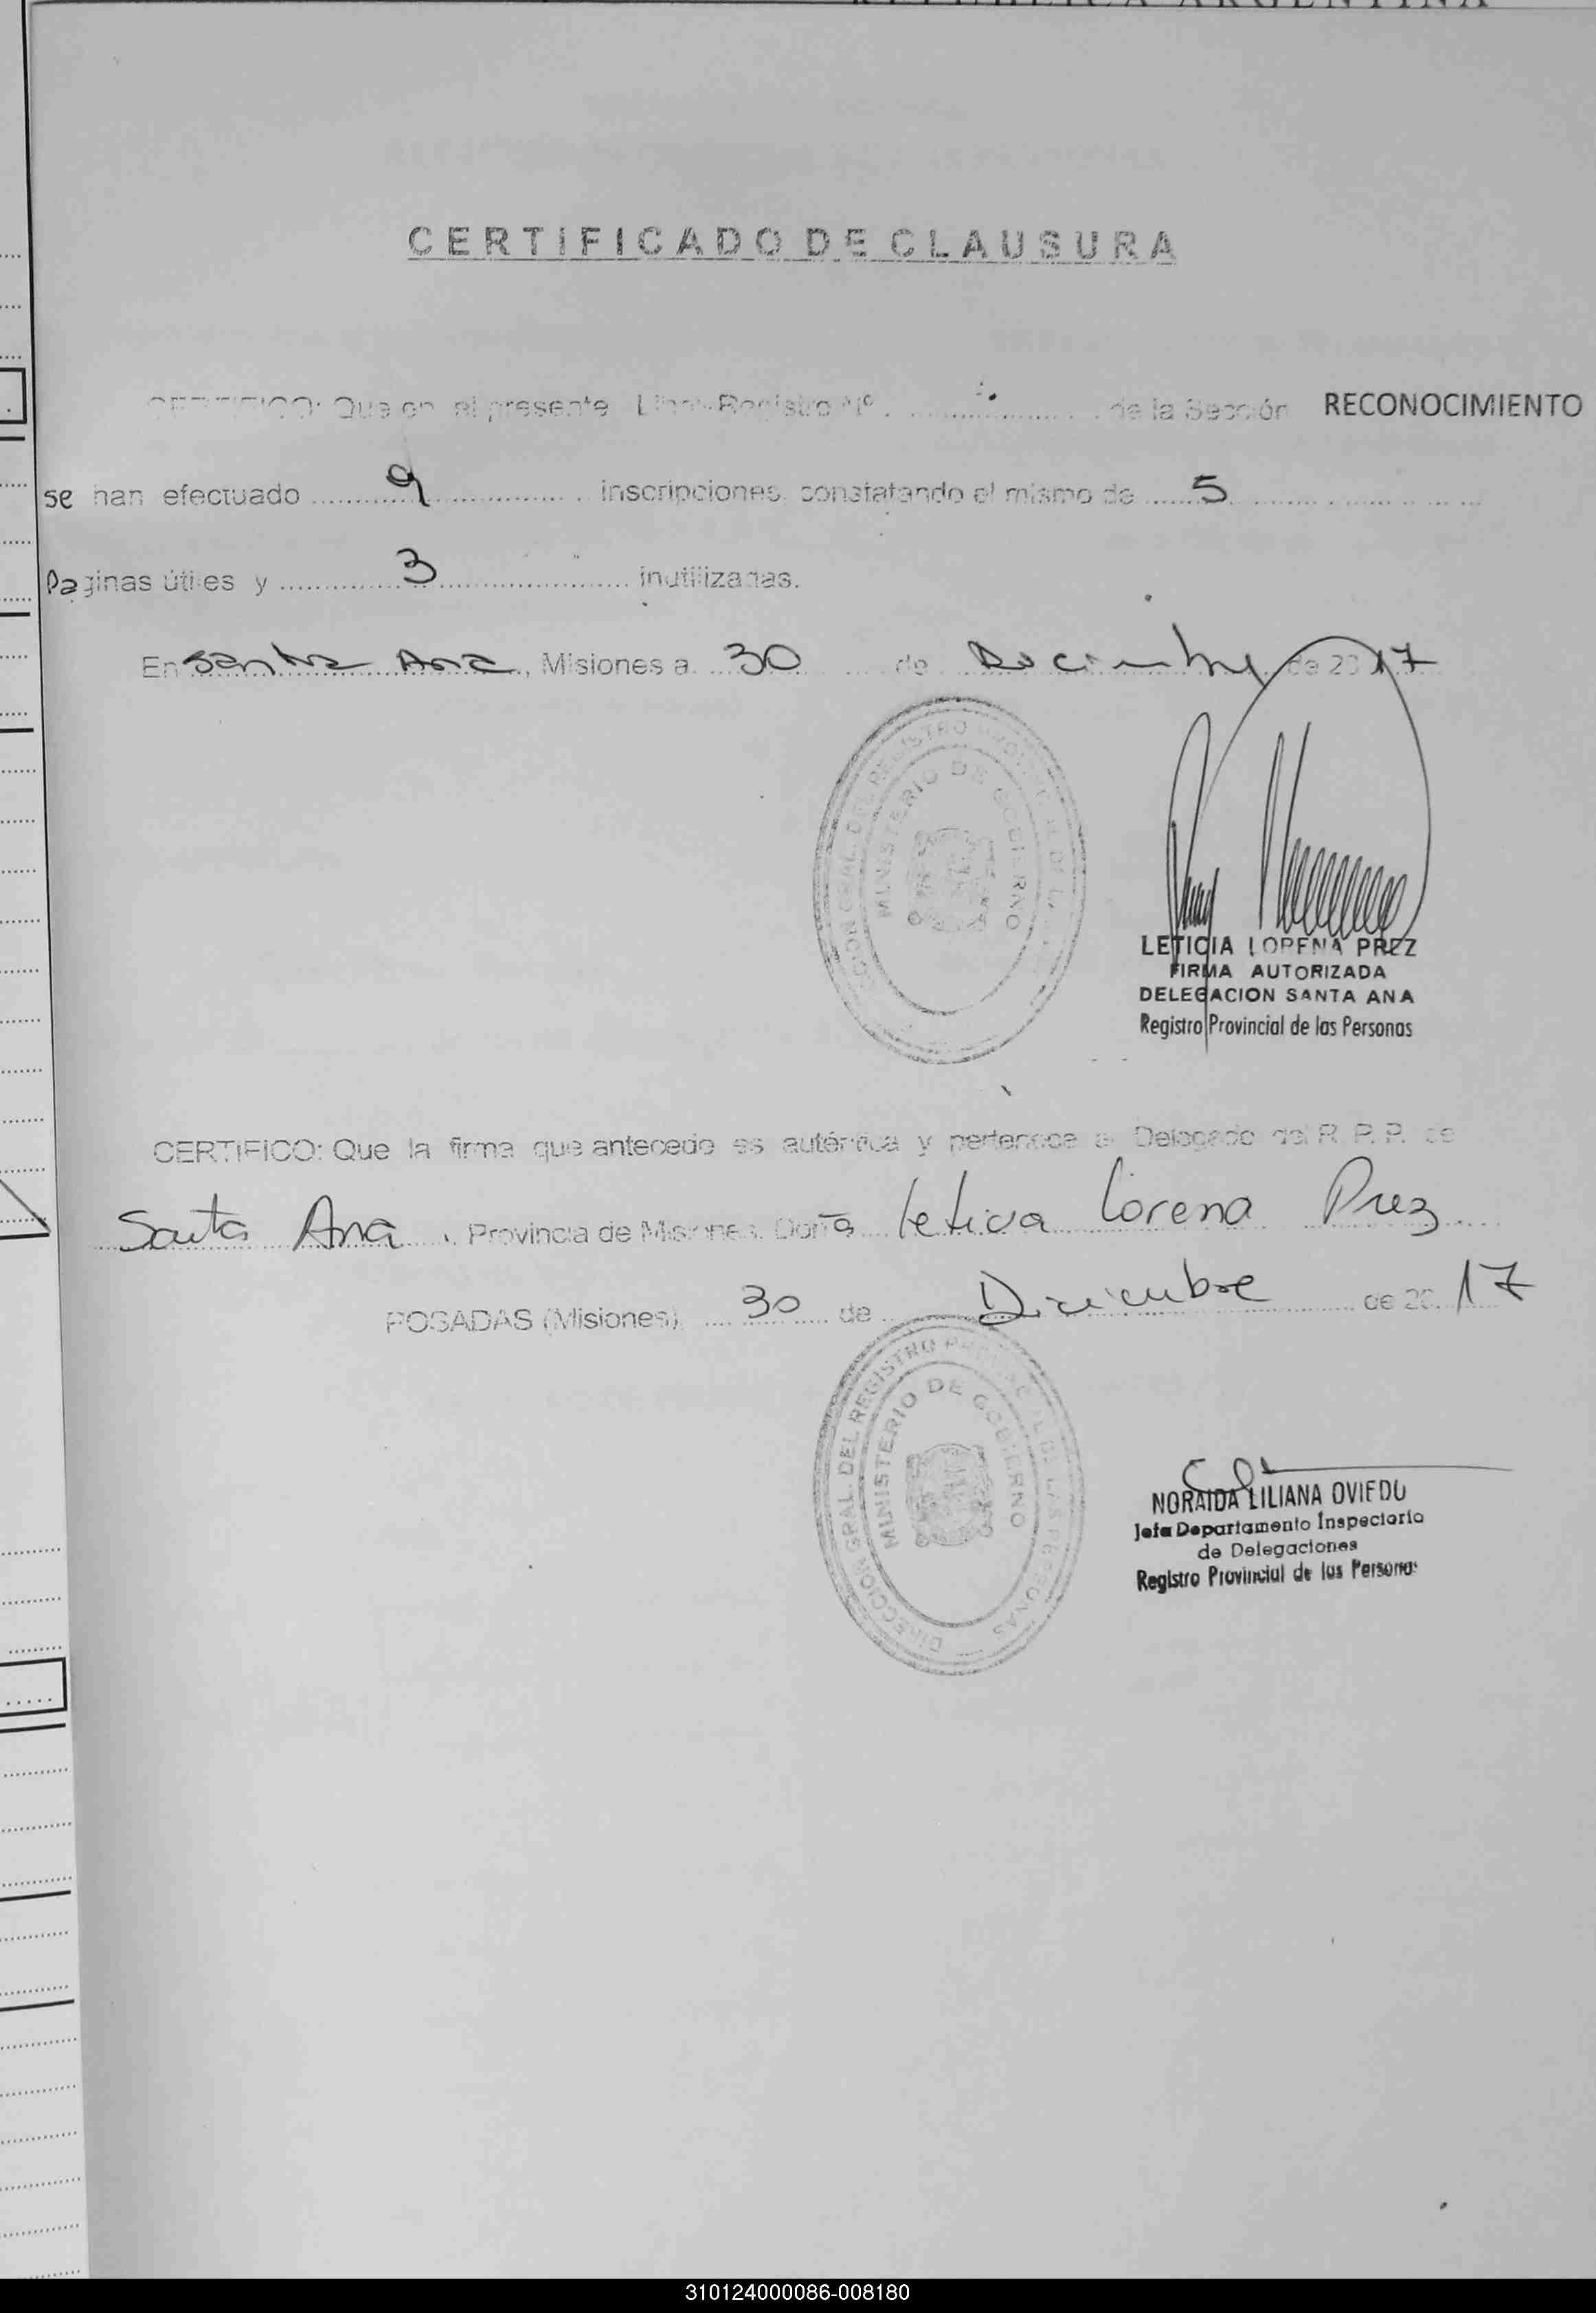 REPUBLICA ARGENTINA
CERTIFICADO DE CLAUSURA
CERTIFICO: Que en el presente Libro-Registro Nº de la Sección RECONOCIMIENTO
se han efectuado 9 inscripciones, constatando el mismo de 5
Paginas útiles y 3 inutilizadas.
En Santa Ana, Misiones a 30 de Diciembre de 2017
DIRECCION GRAL. DEL REGISTRO PROVINCIAL DE LAS
MINISTERIO DE GOBIERNO
LETICIA LORENA PREZ
FIRMA AUTORIZADA
DELEGACION SANTA ANA
Registro Provincial de las Personas
CERTIFICO: Que la firma que antecede es auténtica y pertenece al Delegado del R. P. P. de
Santa Ana, Provincia de Misiones. Doña Leticia Lorena Prez
POSADAS (Misiones), 30 de Diciembre de 2017
DIRECCION GRAL. DEL REGISTRO PROVINCIAL DE LAS PERSONAS
MINISTERIO DE GOBIERNO
NORAIDA LILIANA OVIEDO
Jefa Departamento Inspectoría
de Delegaciones
Registro Provincial de las Personas
310124000086-008180